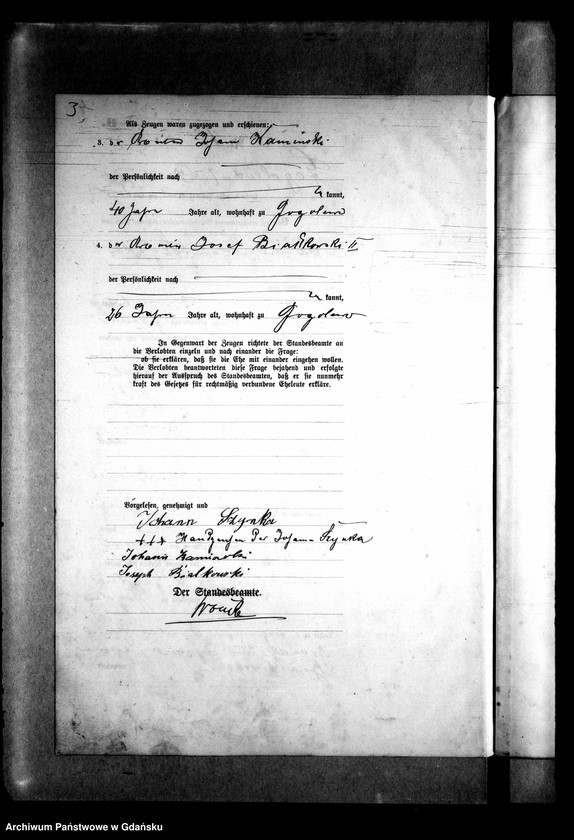 3
Als Zeugen waren zugezogen und erschienen:
3. der Johann Kaminski
der Persönlichkeit nach
kannt,
40 Jahre Jahre alt, wohnhaft zu Gogolewo
4. der Josef Bialkowski II
der Persönlichkeit nach
kannt,
26 Jahre alt, wohnhaft zu Gogolewo
In Gegenwart der Zeugen richtete der Standesbeamte an
die Verlobten einzeln und nach einander die Frage:
ob sie erklären, daß sie die Ehe mit einander eingehen wollen.
Die Verlobten beantworteten diese Frage bejahend und erfolgte
hierauf der Ausspruch des Standesbeamten, daß er sie nunmehr
kraft des Gesetzes für rechtmäßig verbundene Eheleute erkläre.
Vorgelesen, genehmigt und
Johann
+++ Handzeichen der
Johann Kaminski
Joseph Bialkowski
Der Standesbeamte.
Archiwum Państwowe w Gdańsku